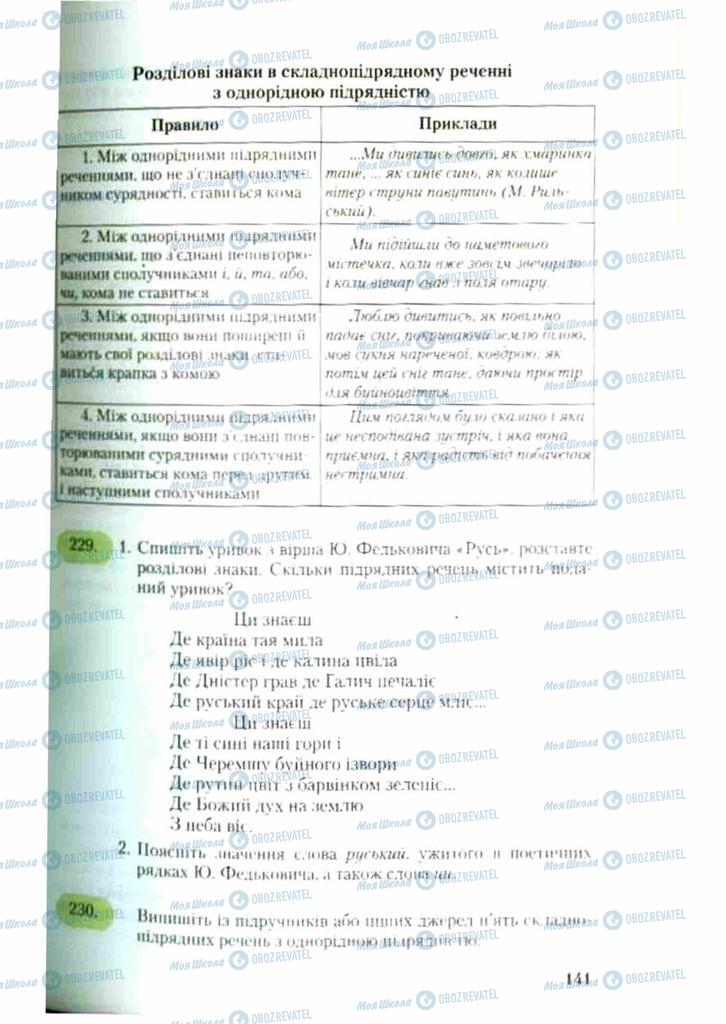 Розділові знаки в складнопідрядному реченні
з однорідною підрядністю
Правило
Приклади
1. Між однорідними підрядними
реченнями, що не з'єднані сполуч-
ником сурядності, ставиться кома
...Ми дивились довго, як хмаринка
тане, ... як синіє синь, як колише
вітер струни павутинь (М. Риль-
ський).
2. Між однорідними підрядними
реченнями, що з'єднані неповторю-
ваними сполучниками і, й, та, або,
чи, кома не ставиться
Ми підійшли до наметового
містечка, коли вже зовсім звечоріло
і коли вівчар гнав з поля отару.
3. Між однорідними підрядними
реченнями, якщо вони поширені й
мають свої розділові знаки, ста-
виться крапка з комою
Люблю дивитись, як повільно
падає сніг, покриваючи землю білою,
мов сукня нареченої, ковдрою; як
потім цей сніг тане, даючи простір
для буйноцвіття
4. Між однорідними підрядними
реченнями, якщо вони з'єднані пов-
торюваними сурядними сполучни-
ками, ставиться кома перед другим
і наступними сполучниками
Цим поглядом було сказано і яка
це несподівана зустріч, і яка вона
приємна, і яка радість від побачення
нестримна.
229. 1. Спишіть уривок з вірша Ю. Федьковича «Русь», розставте
розділові знаки. Скільки підрядних речень містить пода-
ний уривок?
Ци знаєш
Де країна тая мила
Де явір ріс і де калина цвіла
Де Дністер грав де Галич печаліє
Де руський край де руське серце мліє...
Ци знаєш
Де ті сині наші гори і
Де Черемшу буйного ізвори
Де рутин цвіт з барвінком зеленіє...
Де Божий дух на землю
З неба віє.
2. Поясніть значення слова руський, ужитого в поетичних
рядках Ю. Федьковича, а також слова ци.
230. Випишіть із підручників або інших джерел п'ять складно-
підрядних речень з однорідною підрядністю.
141